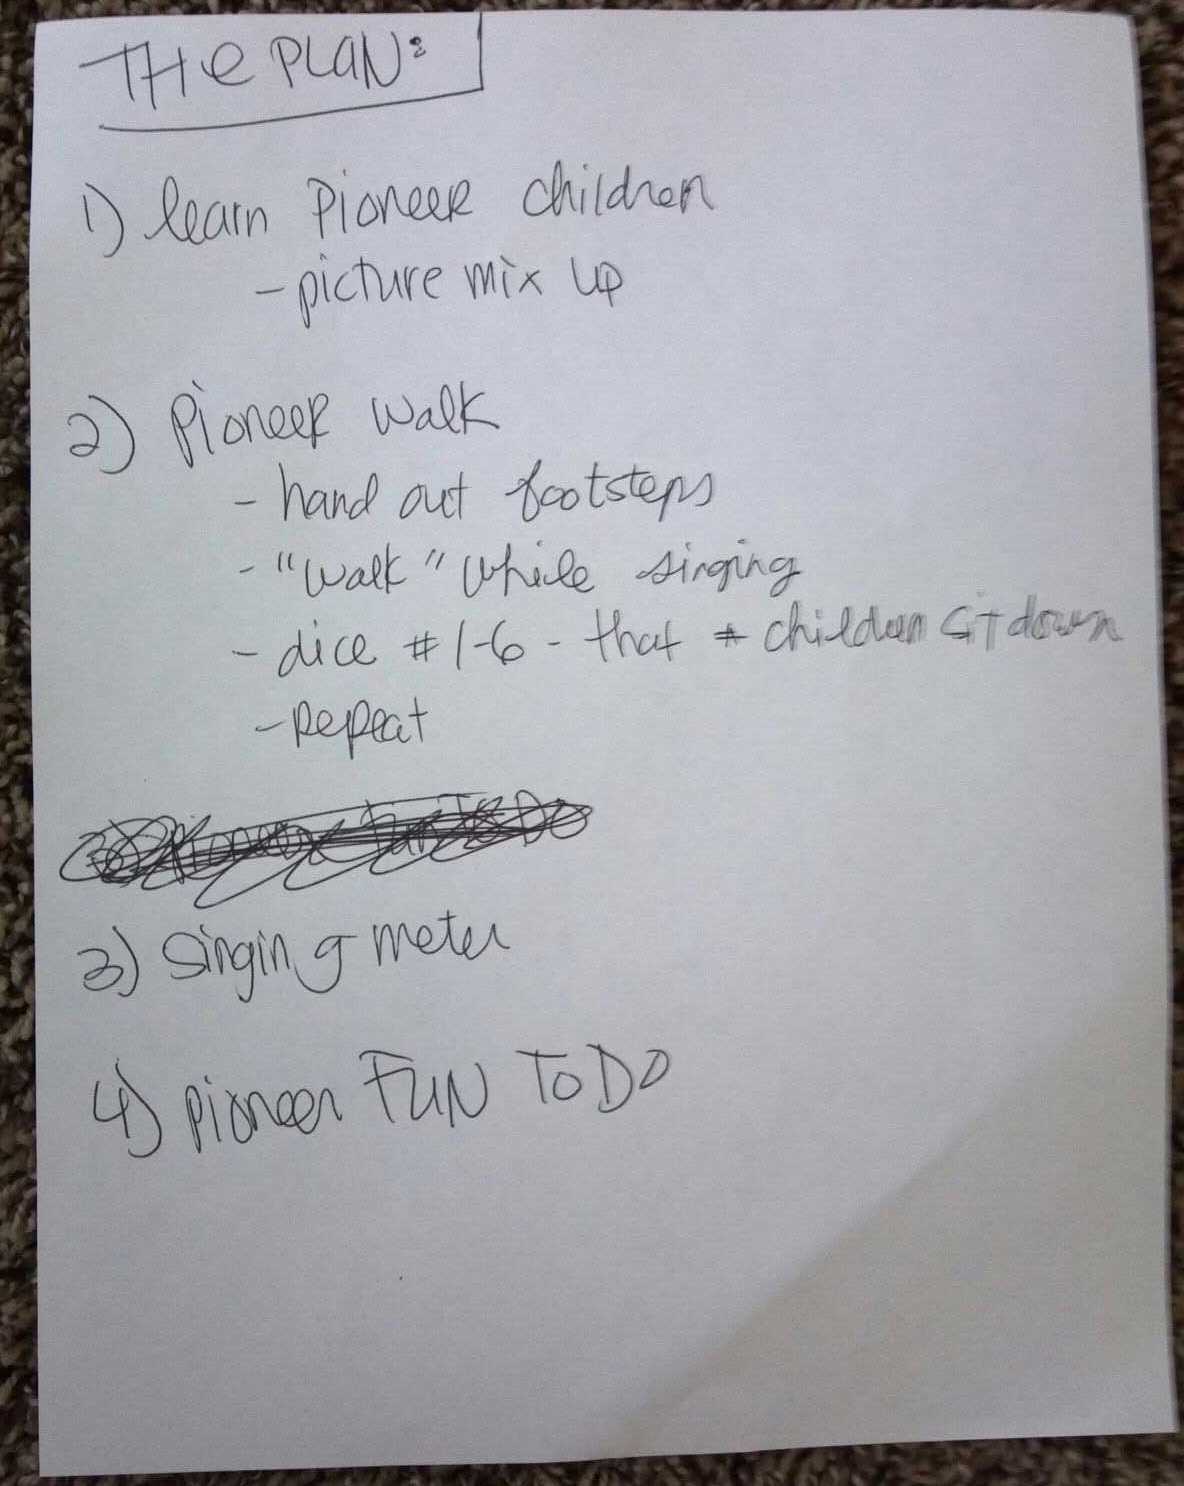 THe PLAN:
1) learn Pioneer children
- picture mix up
2) Pioneer walk
- hand out footsteps
- "walk" while singing
- dice # 1-6 - that # children sit down
- Repeat
3) singing meter
4) pioneer FUN To DO